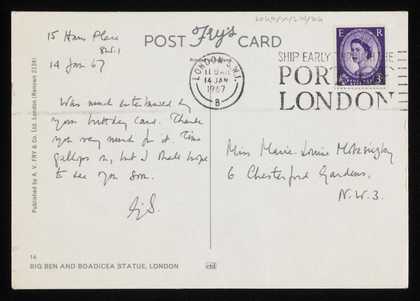 POST Fry's CARD
15 Hans Place
S.W.1
14 Jan 67
Was much entertained by
your birthday card. Thank
you very much for it. Time
gallops on, but I shall hope
to see you soon.
LONDON. S.W.1.
11 15 AM
14 JAN
1967
B
SHIP EARLY THE
PORT
LONDON
E R
Miss Marie-Louise
6 Chesterford Gardens,
N.W.3.
Published by A. V. FRY & Co. Ltd. London (Renown 2134)
14
BIG BEN AND BOADICEA STATUE, LONDON